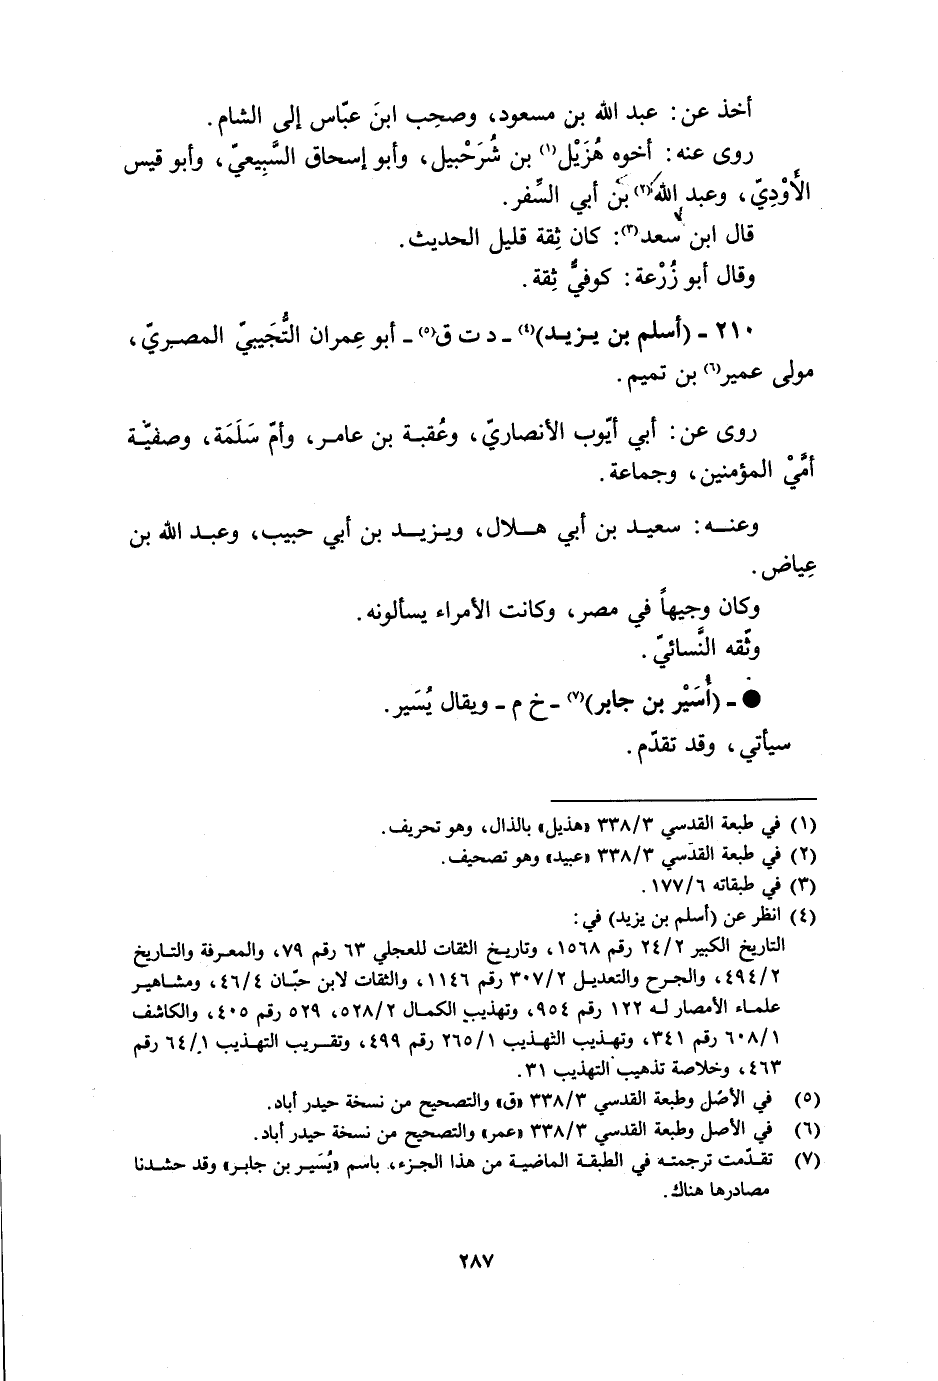 أخذ عن: عبد الله بن مسعود، وصحِب ابنَ عبّاس إلى الشام.
روى عنه: أخوه هُزَيْل(١) بن شُرَحْبيل، وأبو إسحاق السَّبِيعيّ، وأبو قيس
الأَوْديّ، وعبد الله(٢) بن أبي السِّفر.
قال ابن سعد(٣): كان ثِقة قليل الحديث.
وقال أبو زُرْعة: كوفيٌّ ثِقة.
٢١٠ ـ (أسلم بن يـزيـد)(٤) ـ د ت ق(٥) ـ أبو عِمران التُّجَيبيّ المصريّ،
مولى عمير(٦) بن تميم.
روى عن: أبي أيّوب الأنصاريّ، وعُقبة بن عامر، وأمّ سَلَمَة، وصفيّة
أمَّيْ المؤمنين، وجماعة.
وعنه: سعيد بن أبي هلال، ويزيد بن أبي حبيب، وعبد الله بن
عِياض.
وكان وجيهاً في مصر، وكانت الأمراء يسألونه.
وثّقه النَّسائيّ.
● ـ (أُسَيْر بن جابر)(٧) ـ خ م ـ ويقال يُسَير.
سيأتي، وقد تقدّم.
(١) في طبعة القدسي ٣٣٨/٣ «هذيل» بالذال، وهو تحريف.
(٢) في طبعة القدسي ٣٣٨/٣ «عبيد» وهو تصحيف.
(٣) في طبقاته ١٧٧/٦.
(٤) انظر عن (أسلم بن يزيد) في:
التاريخ الكبير ٢٤/٢ رقم ١٥٦٨، وتاريخ الثقات للعجلي ٦٣ رقم ٧٩، والمعرفة والتاريخ
٤٩٤/٢، والجرح والتعديل ٣٠٧/٢ رقم ١١٤٦، والثقات لابن حبّان ٤٦/٤، ومشاهير
علماء الأمصار له ١٢٢ رقم ٩٥٤، وتهذيب الكمال ٥٢٨/٢، ٥٢٩ رقم ٤٠٥، والكاشف
٦٠٨/١ رقم ٣٤١، وتهذيب التهذيب ٢٦٥/١ رقم ٤٩٩، وتقريب التهذيب ٦٤/١ رقم
٤٦٣، وخلاصة تذهيب التهذيب ٣١.
(٥) في الأصل وطبعة القدسي ٣٣٨/٣ «ق» والتصحيح من نسخة حيدر أباد.
(٦) في الأصل وطبعة القدسي ٣٣٨/٣ «عمر» والتصحيح من نسخة حيدر أباد.
(٧) تقدّمت ترجمته في الطبقة الماضية من هذا الجزء، باسم «يُسَير بن جابر» وقد حشدنا
مصادرها هناك.
٢٨٧